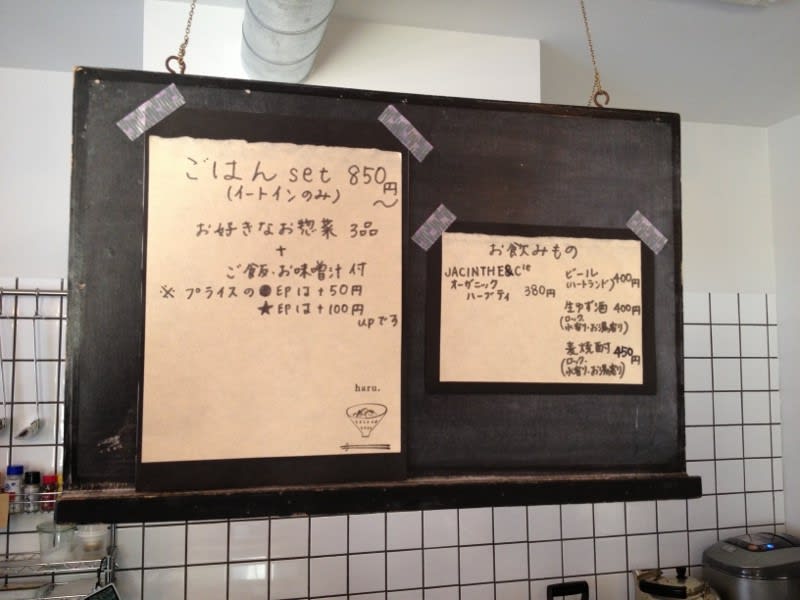 ごはん set 850円〜
(イートインのみ)
お好きなお惣菜 3品
+
ご飯・お味噌汁 付
※ プライスの●印は+50円
★印は+100円
upでる
haru.
お飲みもの
JACINTHE&Cie
オーガニック
ハーブティ 380円
ビール 400円
(ハートランド)
生ゆず酒 400円
(ロック、
水割り・お湯割り)
麦焼酎 450円
(ロック・
水割り・お湯割り)